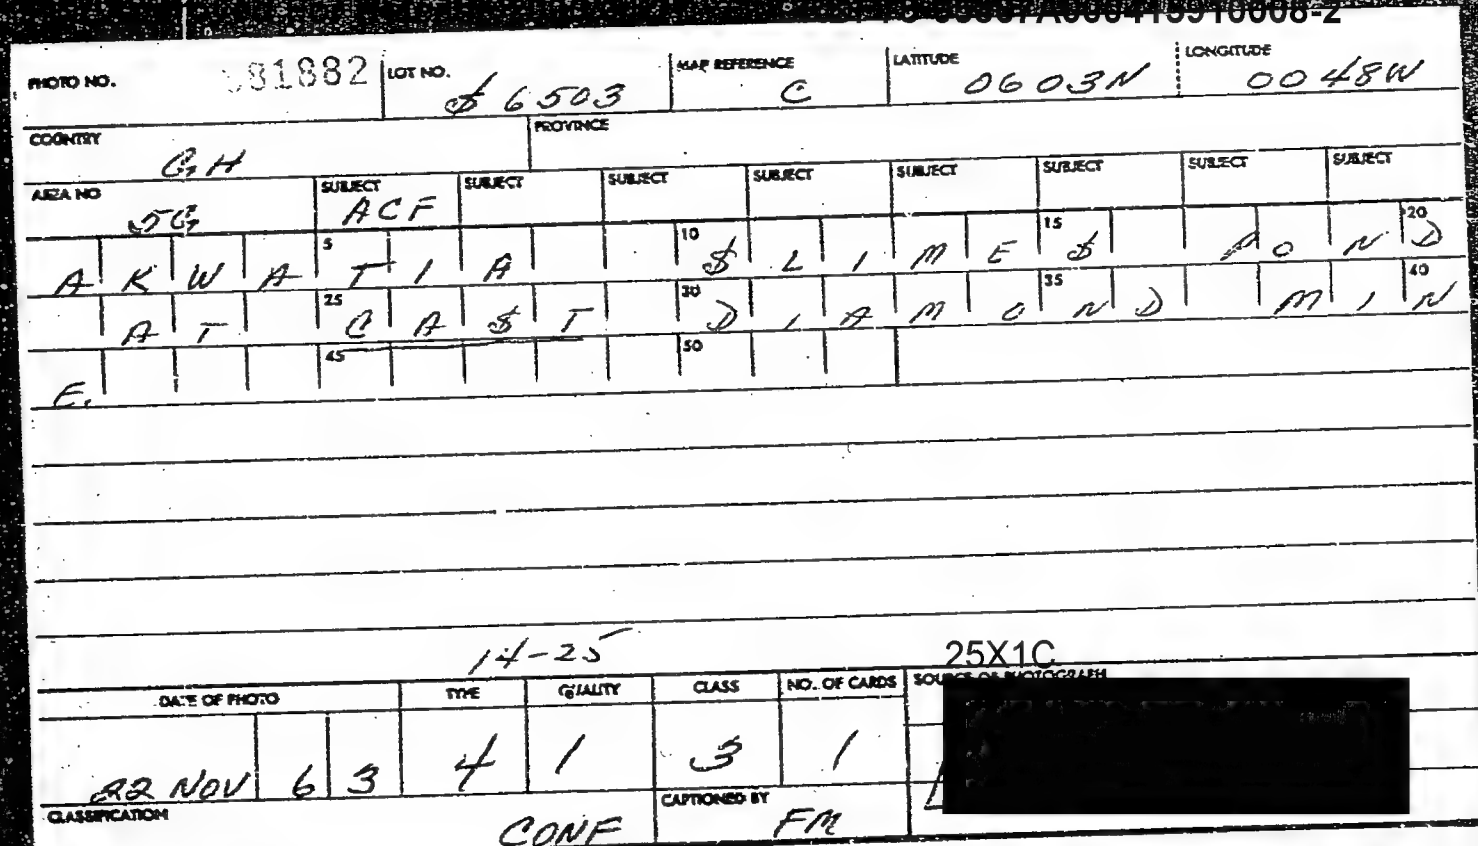 PHOTO NO. 81882 LOT NO. $ 6503 MAP REFERENCE C LATITUDE 0603N LONGITUDE 0048W
COUNTRY GH PROVINCE
AREA NO 5G SUBJECT ACF SUBJECT SUBJECT SUBJECT SUBJECT SUBJECT SUBJECT SUBJECT
5 10 15 20
AKWATIA $LIME$ POND
25 30 35 40
AT CA$T DIAMOND MIN
45 50
E.
14-25
25X1C
DATE OF PHOTO TYPE QUALITY CLASS NO. OF CARDS SOURCE OF PHOTOGRAPH
22 NOV 63 4 1 3 1
CLASSIFICATION CONF CAPTIONED BY FM